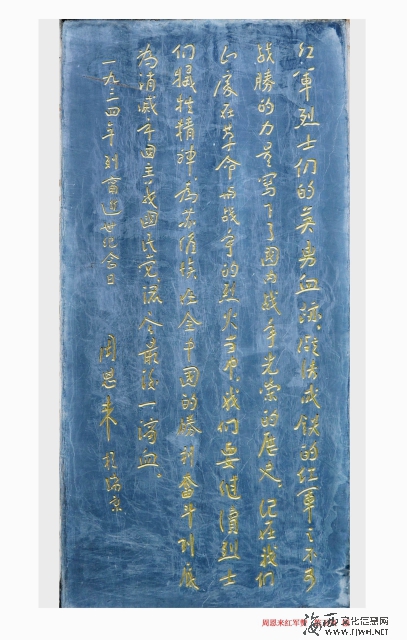 红軍烈士们的英勇血液，凝结成铁的红軍之不可
战勝的力量寫下了國内战争光荣的历史，记在我们
在革命的战争的烈火当中，我们要继续烈士
们犧牲精神，為苏维埃在全中國的勝利奋斗到底
為消滅帝国主义国民党流尽最後一滴血。
一九三四年列甯逝世纪念日 周恩来 於瑞京
周恩来红军
海西文化信息网
www.fjwh.net